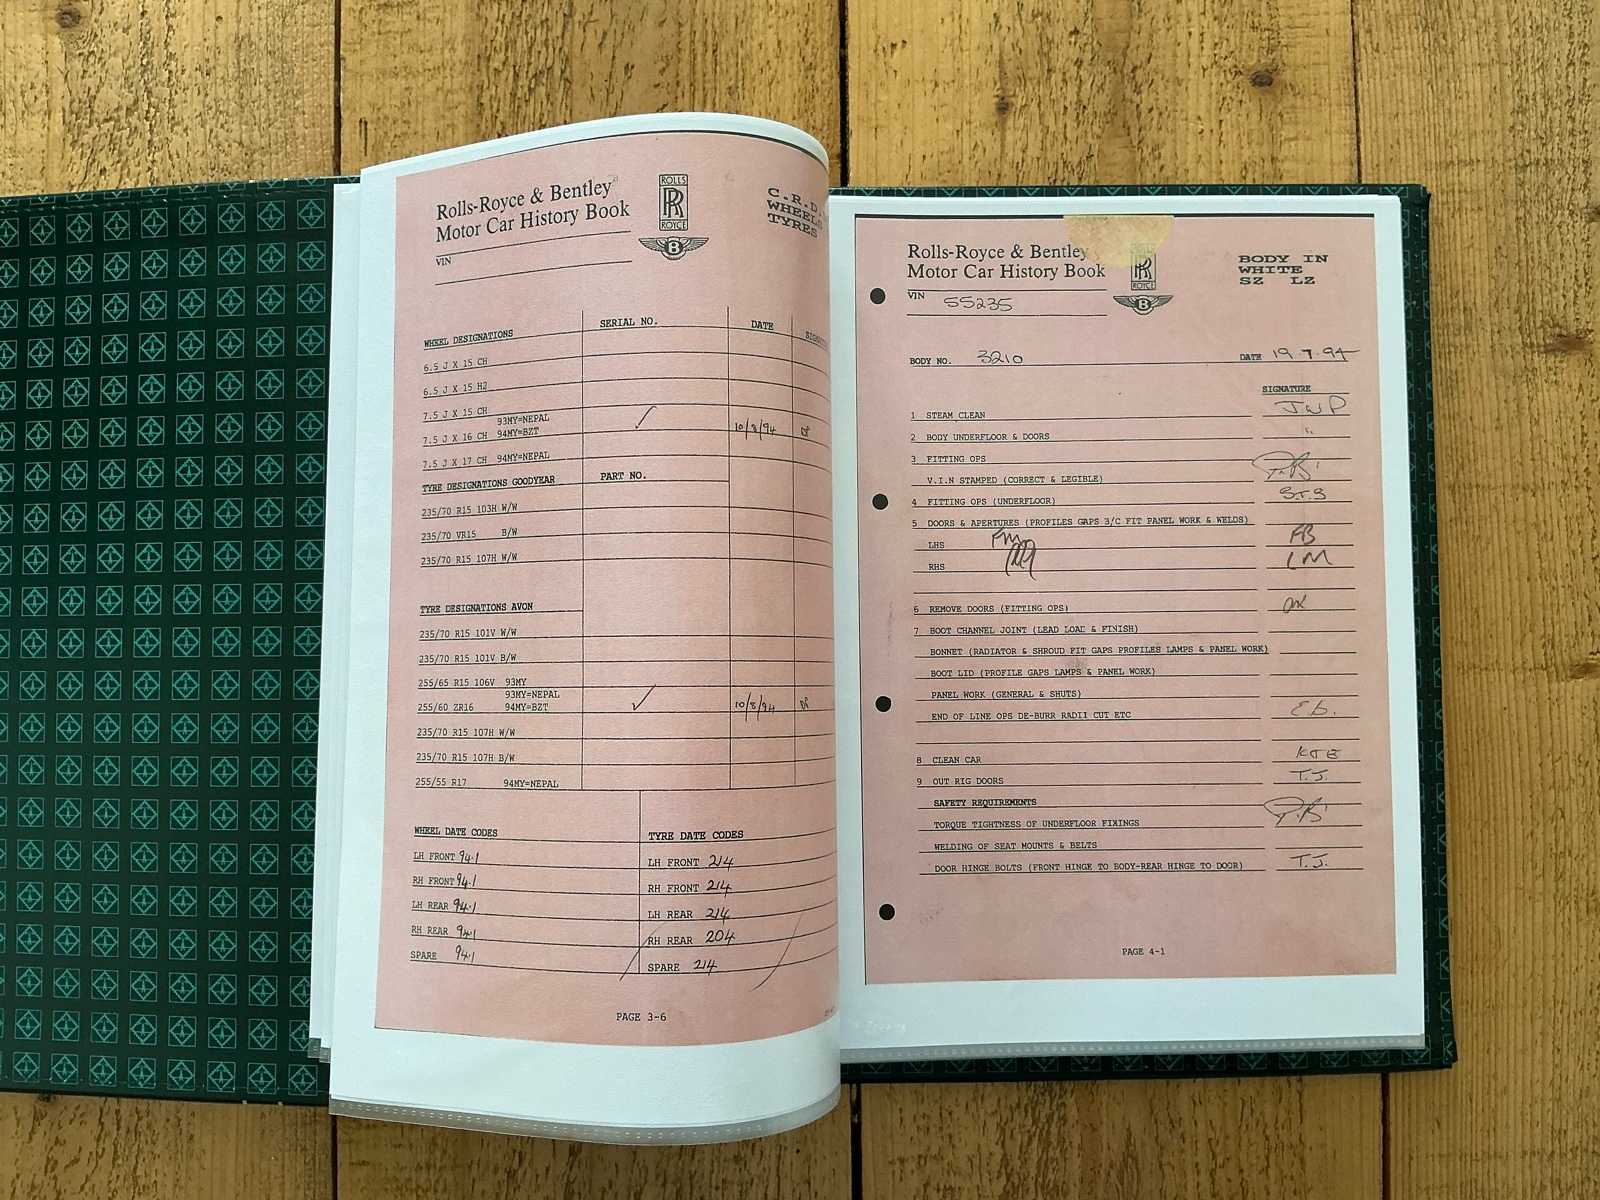 Rolls-Royce & Bentley
Motor Car History Book
ROLLS
RR
ROYCE
B
C.R.D.
WHEELS
TYRES
VIN
WHEEL DESIGNATIONS SERIAL NO. DATE
6.5 J X 15 CH
6.5 J X 15 H2
7.5 J X 15 CH
93MY=NEPAL
7.5 J X 16 CH 94MY=BZT ✓ 10/8/94
7.5 J X 17 CH 94MY=NEPAL
TYRE DESIGNATIONS GOODYEAR PART NO.
235/70 R15 103H W/W
235/70 VR15 B/W
235/70 R15 107H W/W
TYRE DESIGNATIONS AVON
235/70 R15 101V W/W
235/70 R15 101V B/W
255/65 R15 106V 93MY
93MY=NEPAL
255/60 ZR16 94MY=BZT ✓ 10/8/94
235/70 R15 107H W/W
235/70 R15 107H B/W
255/55 R17 94MY=NEPAL
WHEEL DATE CODES TYRE DATE CODES
LH FRONT 94.1 LH FRONT 214
RH FRONT 94.1 RH FRONT 214
LH REAR 94.1 LH REAR 214
RH REAR 94.1 RH REAR 204
SPARE 94.1 SPARE 214
PAGE 3-6
Rolls-Royce & Bentley
Motor Car History Book
RR
ROYCE
B
BODY IN
WHITE
SZ LZ
VIN 55235
BODY NO. 3210 DATE 19.7.94
SIGNATURE
1 STEAM CLEAN JWP
2 BODY UNDERFLOOR & DOORS "
3 FITTING OPS
V.I.N STAMPED (CORRECT & LEGIBLE)
4 FITTING OPS (UNDERFLOOR) S.T.S
5 DOORS & APERTURES (PROFILES GAPS 3/C FIT PANEL WORK & WELDS)
LHS AB
RHS LM
6 REMOVE DOORS (FITTING OPS)
7 BOOT CHANNEL JOINT (LEAD LOAD & FINISH)
BONNET (RADIATOR & SHROUD FIT GAPS PROFILES LAMPS & PANEL WORK)
BOOT LID (PROFILE GAPS LAMPS & PANEL WORK)
PANEL WORK (GENERAL & SHUTS)
END OF LINE OPS DE-BURR RADII CUT ETC
8 CLEAN CAR
9 OUT RIG DOORS T.J.
SAFETY REQUIREMENTS
TORQUE TIGHTNESS OF UNDERFLOOR FIXINGS
WELDING OF SEAT MOUNTS & BELTS
DOOR HINGE BOLTS (FRONT HINGE TO BODY-REAR HINGE TO DOOR) T.J.
PAGE 4-1